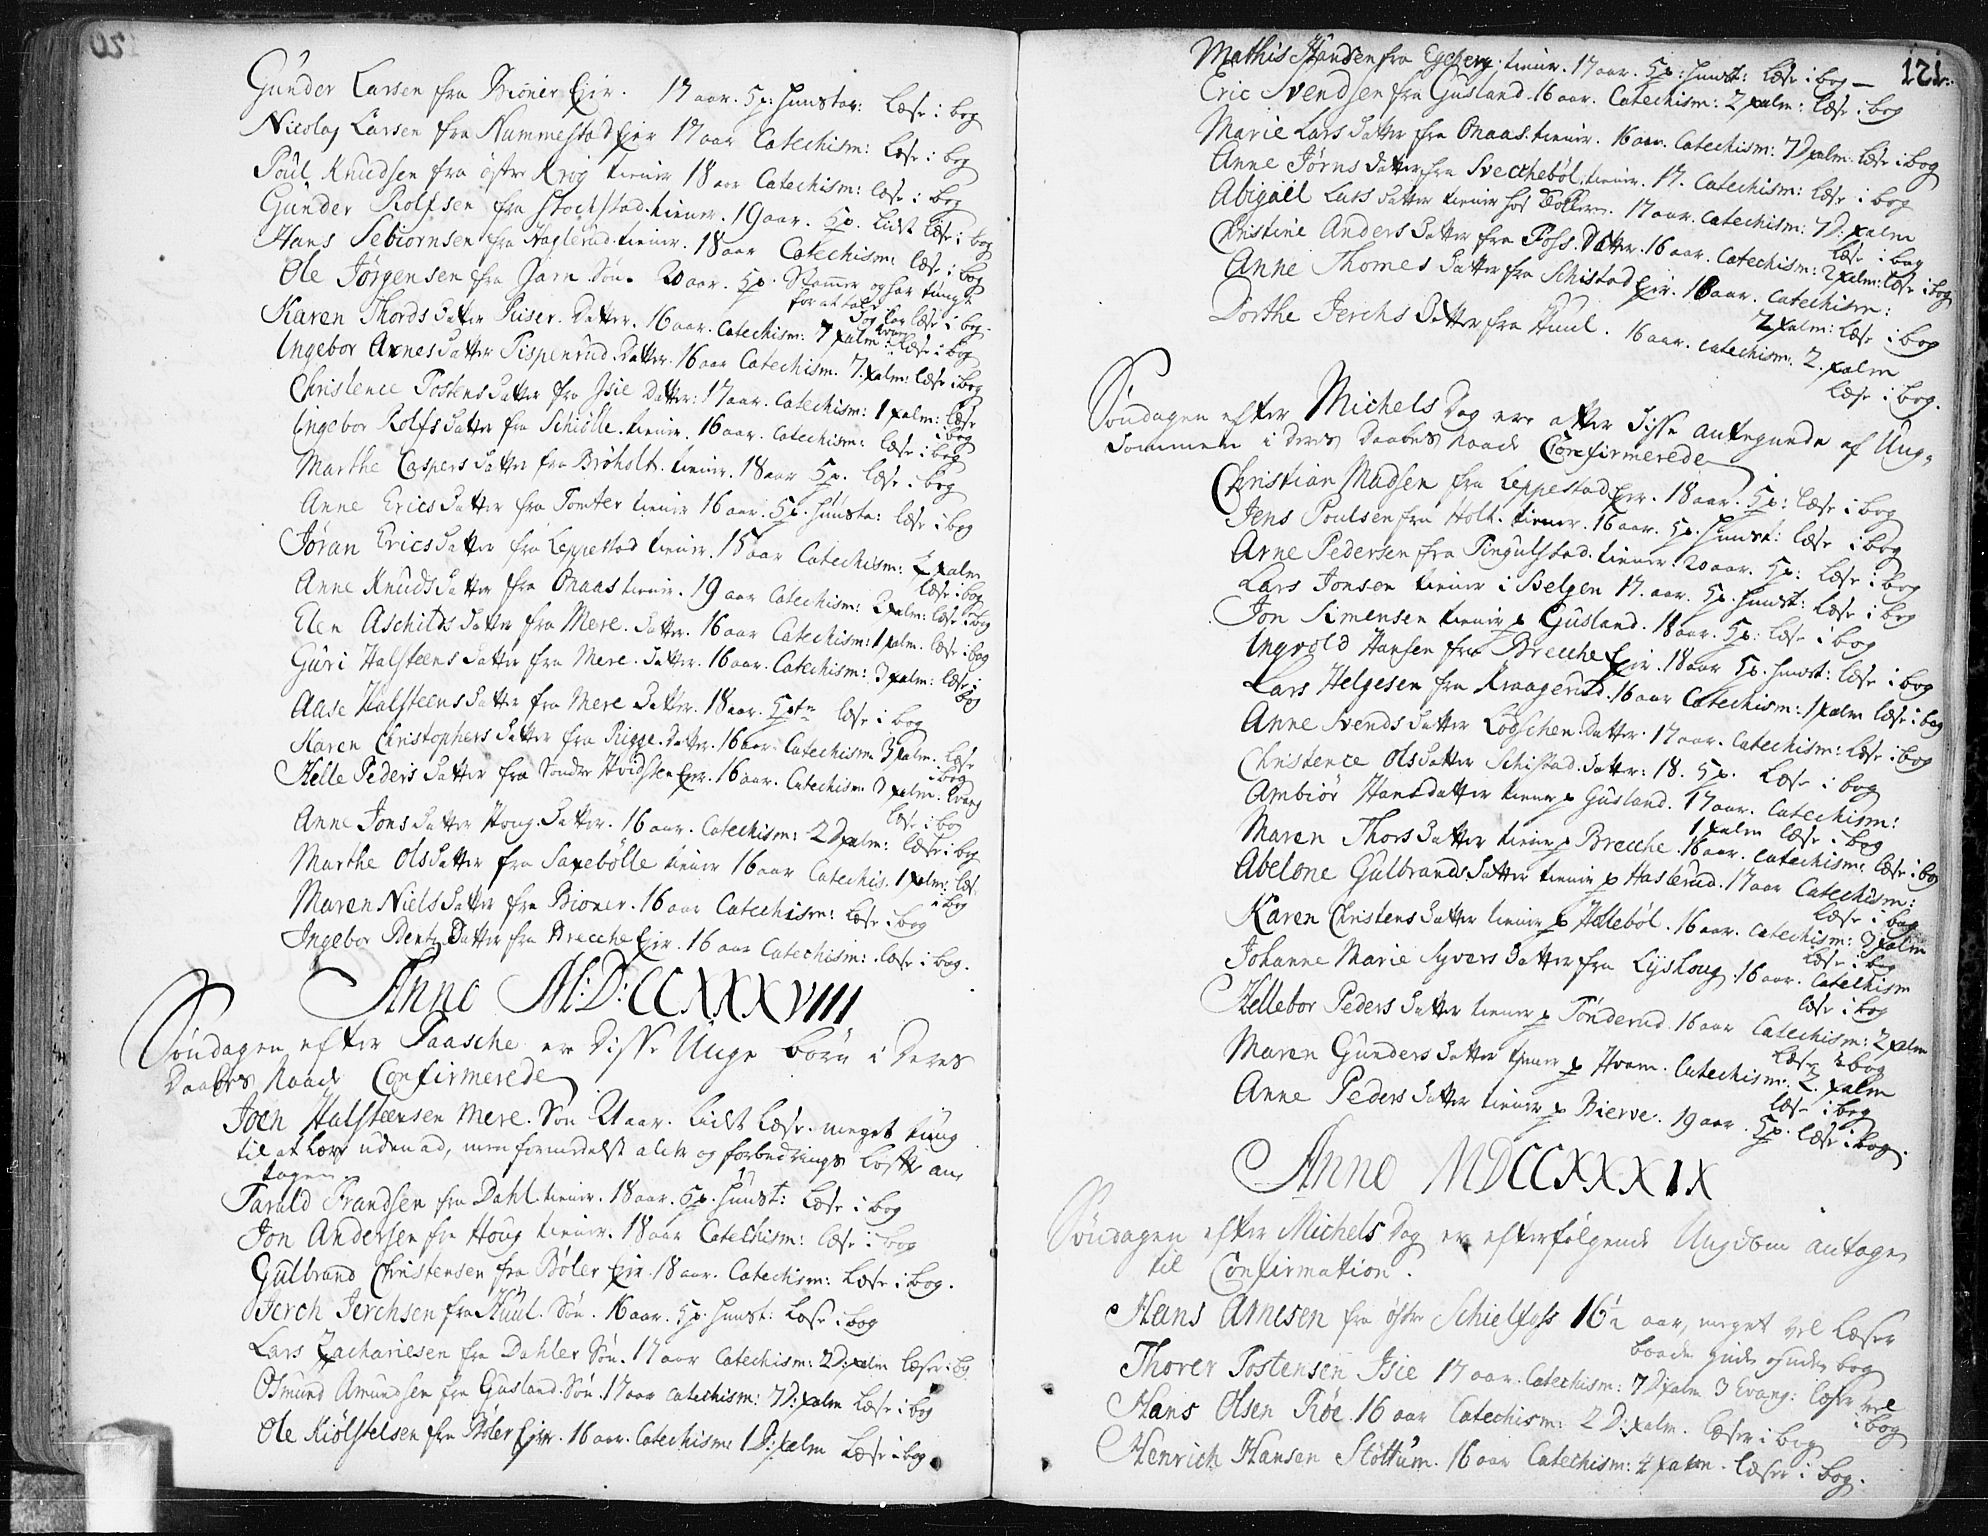 Gunder Larsen fra Bioner Eier. 17 aar. 5p: hunstav: læse i bog
Nicolaj Larsen fra Hummestad Eier 17 aar Catechism: læse i bog
Poul Knudsen fra østre Krog tiener 18 aar Catechism: læse i bog
Gunder Rolfsen fra Stockstad tiener. 19 aar. 5p. lidt læse i bog
Hans Sebiornsen fra Haglerud tiener. 18 aar Catechism: læse i bog
Ole Jørgensen fra Jarn Søn. 20 aar. 5p. Stammer og har tungt
for at tale
dog kan læse i bog.
Karen Thords datter Riiser. Datter. 16 aar. Catechism: 7 psalm: læse i bog
Ingebor Arnes datter Tispenrud. Datter. 16 aar Catechism. 7. psalm: læse i bog
Christence Tostens datter fra Isie Datter: 17 aar. Catechism: 1 psalm: læse
i bog
Ingebor Rolfs datter fra Schiolle. tiener. 16 aar. Catechism: læse i bog
Marthe Caspers datter fra Brøholt. tiener. 18 aar 5p. læse i bog
Anne Erics datter fra Tomter tiener 16 aar. 5p. hunsta: læse i bog
Jøran Erics datter fra Leppestad tiener. 15 aar Catechism: 2 psalm
læse i bog
Anne Knuds datter fra Onaas tiener. 19 aar Catechism: 2 psalm: læse i bog
Elen Aschilds datter fra Mere. datter. 16 aar Catechism: 1 psalm. læse i bog
Guri Halsteens datter fra Mere. datter. 16 aar. Catechism: 3 psalm: læse i
bog
Aase Halsteens datter fra Mere datter. 18 aar. 5 læse i bog
Karen Christophers datter fra Rigge. datter. 16 aar. Catechism 3 psalm. læse
i bog
Helle Peders datter fra Søndre Hvidsten Eier. 16 aar. Catechism 3 psalm. Evang
læse i bog
Anne Jons datter Houg. datter. 16 aar. Catechism: 2 D psalm: læse i bog
Marthe Ols datter fra Saxebølle tiener 16 aar Catechis. 1 psalm: læs.
i bog
Maren Niels datter fra Bioner. 16 aar Catechism: læse i bog
Ingebor Bentz Datter fra Brecche Eier. 16 aar Catechism: læse i bog.
Anno M:D:CCXXXVIII
Søndagen efter Paasche ere disse Unge børn i deres
Daabes Naade Confirmerede
Joen Halsteensen Mere. Søn 21 aar. lidt læse. meget tung
til at lære uden ad, men formedelst alder og forbedrings løfte an
tagen
Tarald Frandsen fra Dahl tiener. 18 aar. 5p. hunst: læse i bog
Jon Andersen fra Houg tiener. 18 aar Catechism: læse i bog
Gulbrand Christensen fra Bøler Eier 18 aar. Catechism: læse i bog.
Jerch Jerchsen fra Huul. Søn. 16 aar. 5p. hunst: læse i bog
Lars Zachariesen fra Dahler Søn. 17 aar Catechism: 2 D: psalm læser i b.
Osmund Amundsen fra Gusland. Søn 17 aar catechism: 7 D: psalm læse i bog
Ole Kiølstelsen fra Bøler Eier. 16 aar. Catechism: 1 D: psalm læse i bog.
121.
Mathis Hansen fra Egeberg. tiener. 17 aar. 5p: hunst: læse i bog
Eric Svendsen fra Gusland. 16 aar. Catechism: 2 psalm: læse i bog
Marie Lars datter fra Onaas. tiener. 16 aar. Catechism: 7 D psalm. læse i bog
Anne Jørns datter fra Svecchebøl. tiener. 17. Catechism: læse i bog
Abigaël Lars datter tiener hos 17 aar. Catechism: 7 D: psalm
læse i bog
Christine Anders datter fra Foss. Datter. 16 aar. Catechism: 2 psalm: læse i bog
Anne Thomes datter fra Schistad Eier. 18 aar. Catechism:
2 psalm: læse i bog
Dorthe Jerchs datter fra Huul. 16 aar. catechism. 2. psalm
læse i bog.
Søndagen efter Michels Dag ere atter disse antegnede af Ung=
dommen i deres Daabes Naade Confirmerede
Christian Madsen fra Leppestad Eier. 18 aar. 5p: læse i bog
Jens Poulsen fra Holt. tiener. 16 aar. 5p. hunst: læse i bog
Arne Pedersen fra Tingulstad. tiener 20 aar. 5p: læse i bog
Lars Jonsen tiener i Belgen 17. aar. 5p. hunst: læse i bog
Jon Simensen tiener p Gusland. 18 aar. 5p: læse i bog
Ingvold Hansen fra Brecche Eier. 18 aar 5p. hunst: læse i bog
Lars Helgesen fra Kraagerud. 16 aar Catechism: 1 psalm læse i bog
Anne Svends datter Lodschen. Datter. 17 aar. Catechism: læse i bog
Christence Ols datter Schistad. datter: 18. 5p. læse i bog
Ambiør Hans datter tiener p Gusland. 17 aar. Catechism:
1 psalm læse i bog
Maren Thors datter tiener p Brecche. 16 aar. Catechism: læse i bog
Abelone Gulbrands datter tiener p Haslerud. 17 aar Catechism:
læse i bog
Karen Christens datter tiener p Hellebøl. 16 aar. catechism: 3 psalm
læse i bog
Johanne Marie Syvers datter fra Lyshoug. 16 aar. Catechism
læse i bog
Hellebor Peders datter tiener p Tønderud. 16 aar Catechism: 2 psalm
læse i bog
Maren Gunders datter tiener p Hvam. Catechism: 2. psalm
læse i bog
Anne Peders datter tiener p Bierve. 19 aar. 5p. læse i bog.
Anno MDCCXXXIX
Søndagen efter Michels Dag er efterfølgende Ungdom antagen
til Confirmation.
Hans Arnesen fra østre Schielfoss 16½ aar, meget vel læser
baade inden og uden bog
Thorer Tostensen Isie 17 aar. Catechism: 7 D psalm 3 Evang: læser vel
i bog
Hans Olsen Røe. 16 aar Catechism: 2 D: psalm. læser i bog
Henrich Hansen Støttum. 16 aar Catechism: 4 psalm. læser i bog.